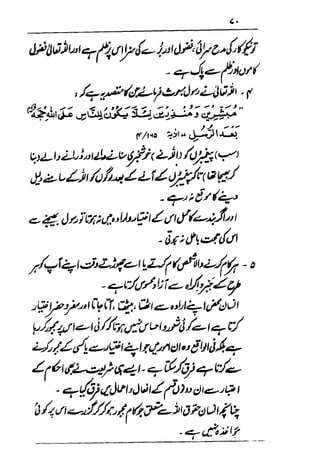 ۷۰
تو نیکو کار کی مدح سرائی، فضول اور بُرے کی سزا اس پر ظلم ہے اور اللہ تعالیٰ فضول
کاموں اور ظلم سے پاک ہے ۔
۴ ۔ اللہ تعالیٰ نے رسول مبعوث فرمائے جن کا مقصد یہ ہے کہ :
"مُبَشِّرِينَ وَمُنْذِرِينَ لِئَلَّا يَكُونَ لِلنَّاسِ عَلَى اللّٰهِ حُجَّةٌ
بَعْدَ الرُّسُلِ ۰۰ الآیة ۴/۱۶۵
(سب) پیغمبروں کو (اللہ نے) خوشخبری سنانے والے اور ڈرانے والے (بنا
کر بھیجا تھا) تاکہ پیغمبروں کے آنے کے بعد لوگوں کو اللہ کے سامنے دلیل
دینے کا موقع نہ رہے ۔
اور اگر بندے کا عمل اس کے اختیار و ارادہ میں نہ ہوتا تو رسول بھیجنے سے
اس کی حجت باطل نہ ہوتی ۔
۵ ۔ ہر کام کرنے والا شخص کام کرتے یا اسے چھوڑتے وقت اپنے آپ کو ہر
طرح کے جبر و اکراہ سے آزاد محسوس کرتا ہے ۔
انسان محض اپنے ارادہ سے اٹھتا، بیٹھتا، آتا جاتا اور سفر و حضر اختیار
کرتا ہے اسے کوئی شعور و احساس نہیں ہوتا کہ کوئی اسے اس پر مجبور کر رہا
ہے بلکہ فی الواقع وہ ان امور میں جو اپنے اختیار سے یا کسی کے مجبور کرنے
سے کرتا ہے فرق کر سکتا ہے ۔ ایسے ہی شریعت نے بھی احکام کے
اعتبار سے ان دونوں قسم کے افعال و اعمال میں فرق کیا ہے ۔
چنانچہ انسان حقوق اللہ سے متعلق جو کام مجبور ہو کر کر گزرے اس پر کوئی
مؤاخذہ نہیں ہے ۔